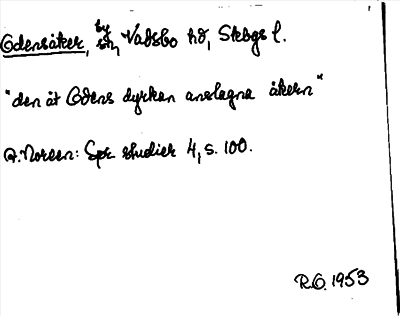 Odensåker, by sn, Vadsbo hd, Skbgs l.
"den åt Odens dyrkan anslagna åkern"
A. Noreen: Spr. studier 4, s. 100.
R.O. 1953